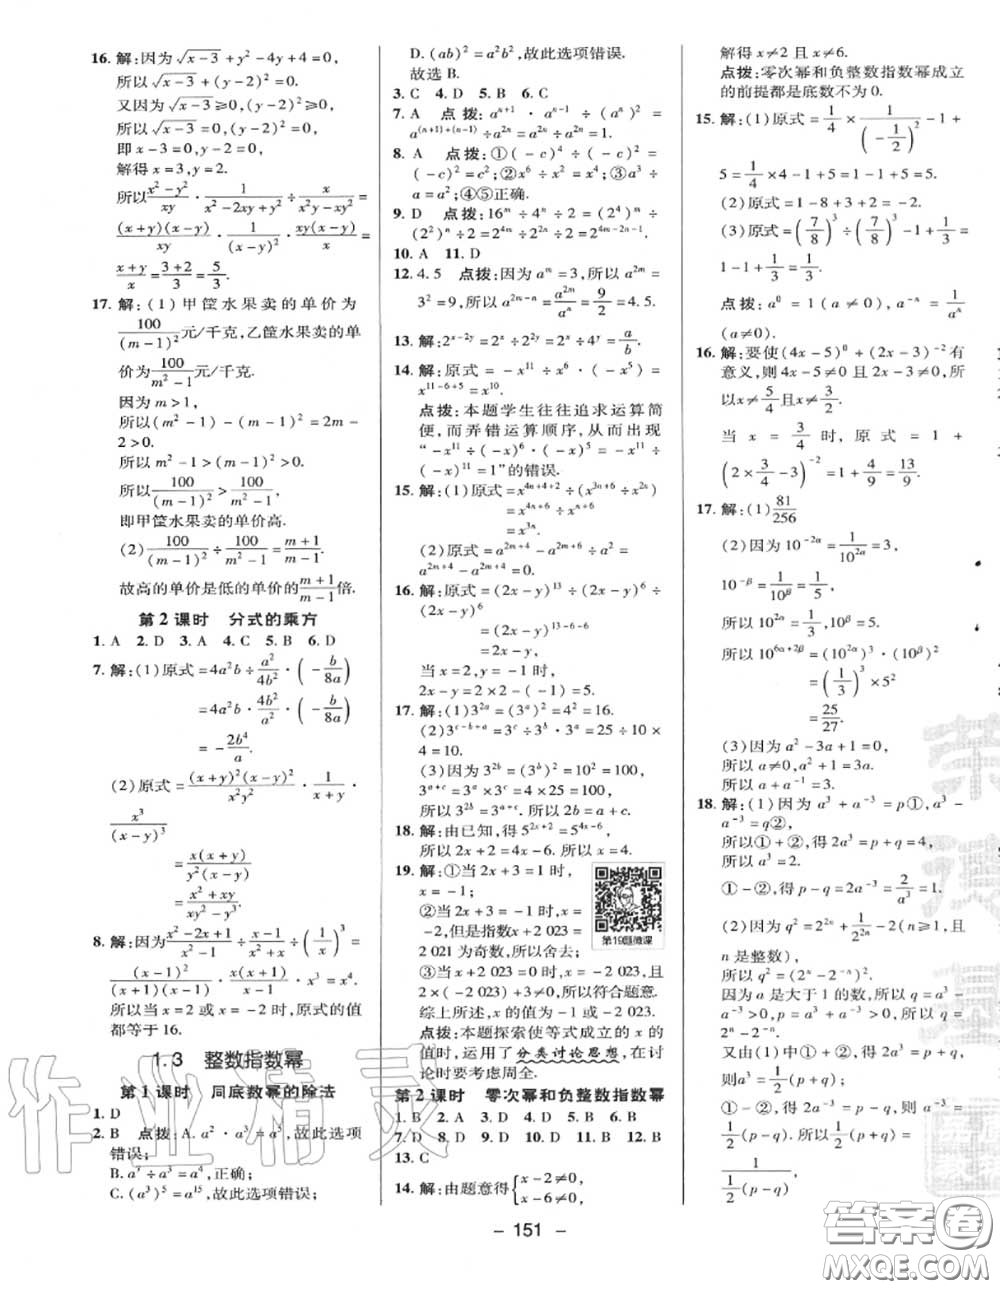 16. 解:因为√(x-3)+y²-4y+4=0,
所以√(x-3)+(y-2)²=0.
又因为√(x-3)≥0,(y-2)²≥0,
所以√(x-3)=0,(y-2)²=0,
即x-3=0,y-2=0.
解得x=3,y=2.
所以(x²-y²)/(xy)·1/(x²-2xy+y²)÷x/(x²y-xy²)=
(x+y)(x-y)/(xy)·1/(x-y)²·xy(x-y)/x=
(x+y)/x=(3+2)/3=5/3.
17. 解:(1)甲筐水果卖的单价为
100/(m-1)²元/千克,乙筐水果卖的单
价为100/(m²-1)元/千克.
因为m>1,
所以(m²-1)-(m-1)²=2m-
2>0.
所以m²-1>(m-1)²>0.
所以100/(m-1)²>100/(m²-1),
即甲筐水果卖的单价高.
(2)100/(m-1)²÷100/(m²-1)=(m+1)/(m-1).
故高的单价是低的单价的(m+1)/(m-1)倍.
第2课时 分式的乘方
1. A 2. D 3. A 4. C 5. B 6. D
7. 解:(1)原式=4a²b÷a²/(4b²)·(-b/(8a))
=4a²b·4b²/a²·(-b/(8a))
=-2b⁴/a.
(2)原式=(x+y)²(x-y)²/(xy)²·1/(x+y)·
x³/(x-y)³
=x(x+y)/(y²(x-y))
=(x²+xy)/(xy²-y³).
8. 解:因为(x²-2x+1)/(x²-1)÷(x-1)/(x²+x)÷(1/x)³=
(x-1)²/((x+1)(x-1))·x(x+1)/(x-1)·x³=x⁴,
所以当x=2或x=-2时,原式的值
都等于16.
1.3 整数指数幂
第1课时 同底数幂的除法
1. D
2. B 点拨:A.a²·a³=a⁵,故此选项
错误;
B.a⁷÷a³=a⁴,正确;
C.(a³)⁵=a¹⁵,故此选项错误;
D.(ab)²=a²b²,故此选项错误.
故选B.
3. C 4. D 5. B 6. C
7. A 点拨:aⁿ⁺¹·aⁿ⁻¹÷(aⁿ)²=
a⁽ⁿ⁺¹⁾⁺⁽ⁿ⁻¹⁾÷a²ⁿ=a²ⁿ÷a²ⁿ=1.
8. A 点拨:①(-c)⁴÷(-c)²=
(-c)²=c²;②x⁶÷x²=x⁴;③a³÷
a=a²;④⑤正确.
9. D 点拨:16ᵐ÷4ⁿ÷2=(2⁴)ᵐ÷
(2²)ⁿ÷2=2⁴ᵐ÷2²ⁿ÷2=2⁴ᵐ⁻²ⁿ⁻¹.
10. A 11. D
12. 4.5 点拨:因为aᵐ=3,所以a²ᵐ=
3²=9,所以a²ᵐ⁻ⁿ=a²ᵐ/aⁿ=9/2=4.5.
13. 解:2ˣ⁻²ʸ=2ˣ÷2²ʸ=2ˣ÷4ʸ=a/b.
14. 解:原式=-x¹¹÷x⁶·(-x⁵)=
x¹¹⁻⁶⁺⁵=x¹⁰.
点拨:本题学生往往追求运算简
便,而弄错运算顺序,从而出现
"-x¹¹÷(-x)⁶·(-x)⁵=-x¹¹÷
(-x)¹¹=1"的错误.
15. 解:(1)原式=x⁴ⁿ⁺⁴⁺²÷(x³ⁿ⁺⁶÷x²ⁿ)
=x⁴ⁿ⁺⁶÷xⁿ⁺⁶
=x³ⁿ.
(2)原式=a²ᵐ⁺⁴-a²ᵐ⁺⁶÷a²=
a²ᵐ⁺⁴-a²ᵐ⁺⁴=0.
16. 解:原式=(2x-y)¹³÷(2x-y)⁶÷
(2x-y)⁶
=(2x-y)¹³⁻⁶⁻⁶
=2x-y,
当x=2,y=-1时,
2x-y=2×2-(-1)=5.
17. 解:(1)3²ᵃ=(3ᵃ)²=4²=16.
(2)3ᶜ⁻ᵇ⁺ᵃ=3ᶜ÷3ᵇ·3ᵃ=25÷10×
4=10.
(3)因为3²ᵇ=(3ᵇ)²=10²=100,
3ᵃ⁺ᶜ=3ᵃ×3ᶜ=4×25=100,
所以3²ᵇ=3ᵃ⁺ᶜ.所以2b=a+c.
18. 解:由已知,得5²ˣ⁺²=5⁴ˣ⁻⁶,
所以2x+2=4x-6.所以x=4.
19. 解:①当2x+3=1时,
x=-1;
②当2x+3=-1时,x=
-2,但是指数x+2 023=
2 021为奇数,所以舍去;
③当x+2 023=0时,x=-2 023,且
2×(-2 023)+3≠0,所以符合题意.
综上所述,x的值为-1或-2 023.
点拨:本题探索使等式成立的x的
值时,运用了分类讨论思想,在讨
论时要考虑周全.
第19题微课
第2课时 零次幂和负整数指数幂
1. B 2. A 3. D 4. D 5. C 6. B
7. D 8. D 9. D 10. D 11. B 12. B
13. C
14. 解:由题意得{x-2≠0, x-6≠0,
解得x≠2且x≠6.
点拨:零次幂和负整数指数幂成立
的前提都是底数不为0.
15. 解:(1)原式=1/4×1/(-1/2)²-1+
5=1/4×4-1+5=1-1+5=5.
(2)原式=1-8+3+2=-2.
(3)原式=(7/8)³÷(7/8)³-1+1/3=
1-1+1/3=1/3.
点拨:a⁰=1(a≠0),a⁻ⁿ=1/aⁿ
(a≠0).
16. 解:要使(4x-5)⁰+(2x-3)⁻²有
意义,则4x-5≠0且2x-3≠0,所
以x≠5/4且x≠3/2.
当x=3/4时,原式=1+
(2×3/4-3)⁻²=1+4/9=13/9.
17. 解:(1)81/256
(2)因为10⁻²ᵅ=1/10²ᵅ=3,
10⁻ᵝ=1/10ᵝ=1/5,
所以10²ᵅ=1/3,10ᵝ=5.
所以10⁶ᵅ⁺²ᵝ=(10²ᵅ)³·(10ᵝ)²
=(1/3)³×5²
=25/27.
(3)因为a²-3a+1=0,
所以a≠0,a²+1=3a.
所以a+a⁻¹=3.
18. 解:(1)因为a³+a⁻³=p①,a³-
a⁻³=q②,
所以①+②,得2a³=p+q=4,
所以a³=2.
①-②,得p-q=2a⁻³=2/a³=1.
(2)因为q²=2²ⁿ+1/2²ⁿ-2(n≥1,且
n是整数),
所以q²=(2ⁿ-2⁻ⁿ)².
因为a是大于1的数,所以q=a³-
a⁻³>0,所以p>q>0,所以q=
2ⁿ-2⁻ⁿ.
又由(1)中①+②得2a³=p+q,a³=
1/2(p+q),
①-②得2a⁻³=p-q,则a⁻³=
1/2(p-q).所以1/2(p+q)=
1/(1/2(p-q)),
- 151 -
作业精灵
答案圈
MXQE.COM